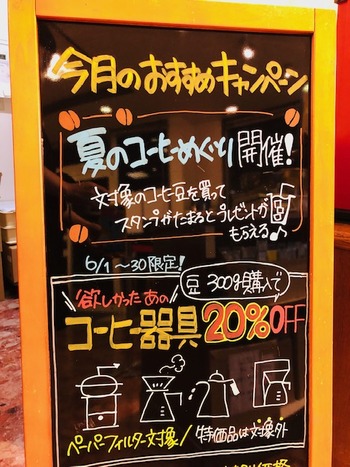 今月のおすすめキャンペーン
夏のコーヒーめぐり開催!
対象のコーヒー豆を買って
スタンプがたまるとプレゼントが
もらえる♪
6/1〜30限定!
豆300g購入で
欲しかったあの
コーヒー器具20%OFF
ペーパーフィルター対象/特価品は対象外